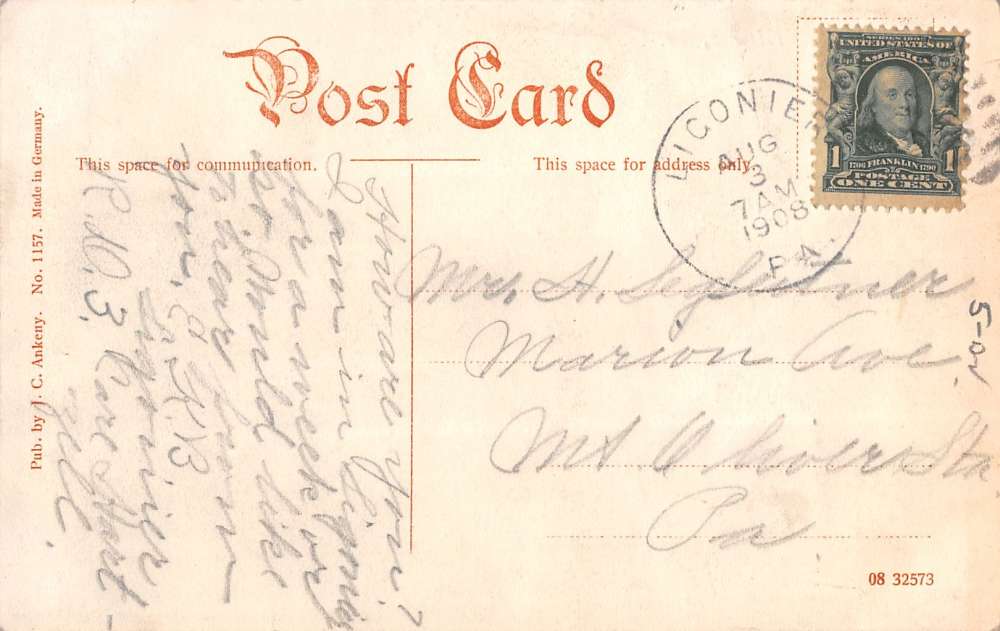 Post Card
This space for communication.
This space for address only.
Pub. by J. C. Ankeny. No. 1157. Made in Germany.
SERIES 1902
UNITED STATES OF
AMERICA
1706 FRANKLIN 1790
1 1
POSTAGE
ONE CENT
LIGONIER
AUG
3
7 AM
1908
PA.
Mrs. H.
Marion Ave.
Mt Oliver Sta
Pa.
How are you?
I am in Ligonier
for a week or
so. Would like
to hear from
you.
Ligonier
R.D. 3. Care
08 32573